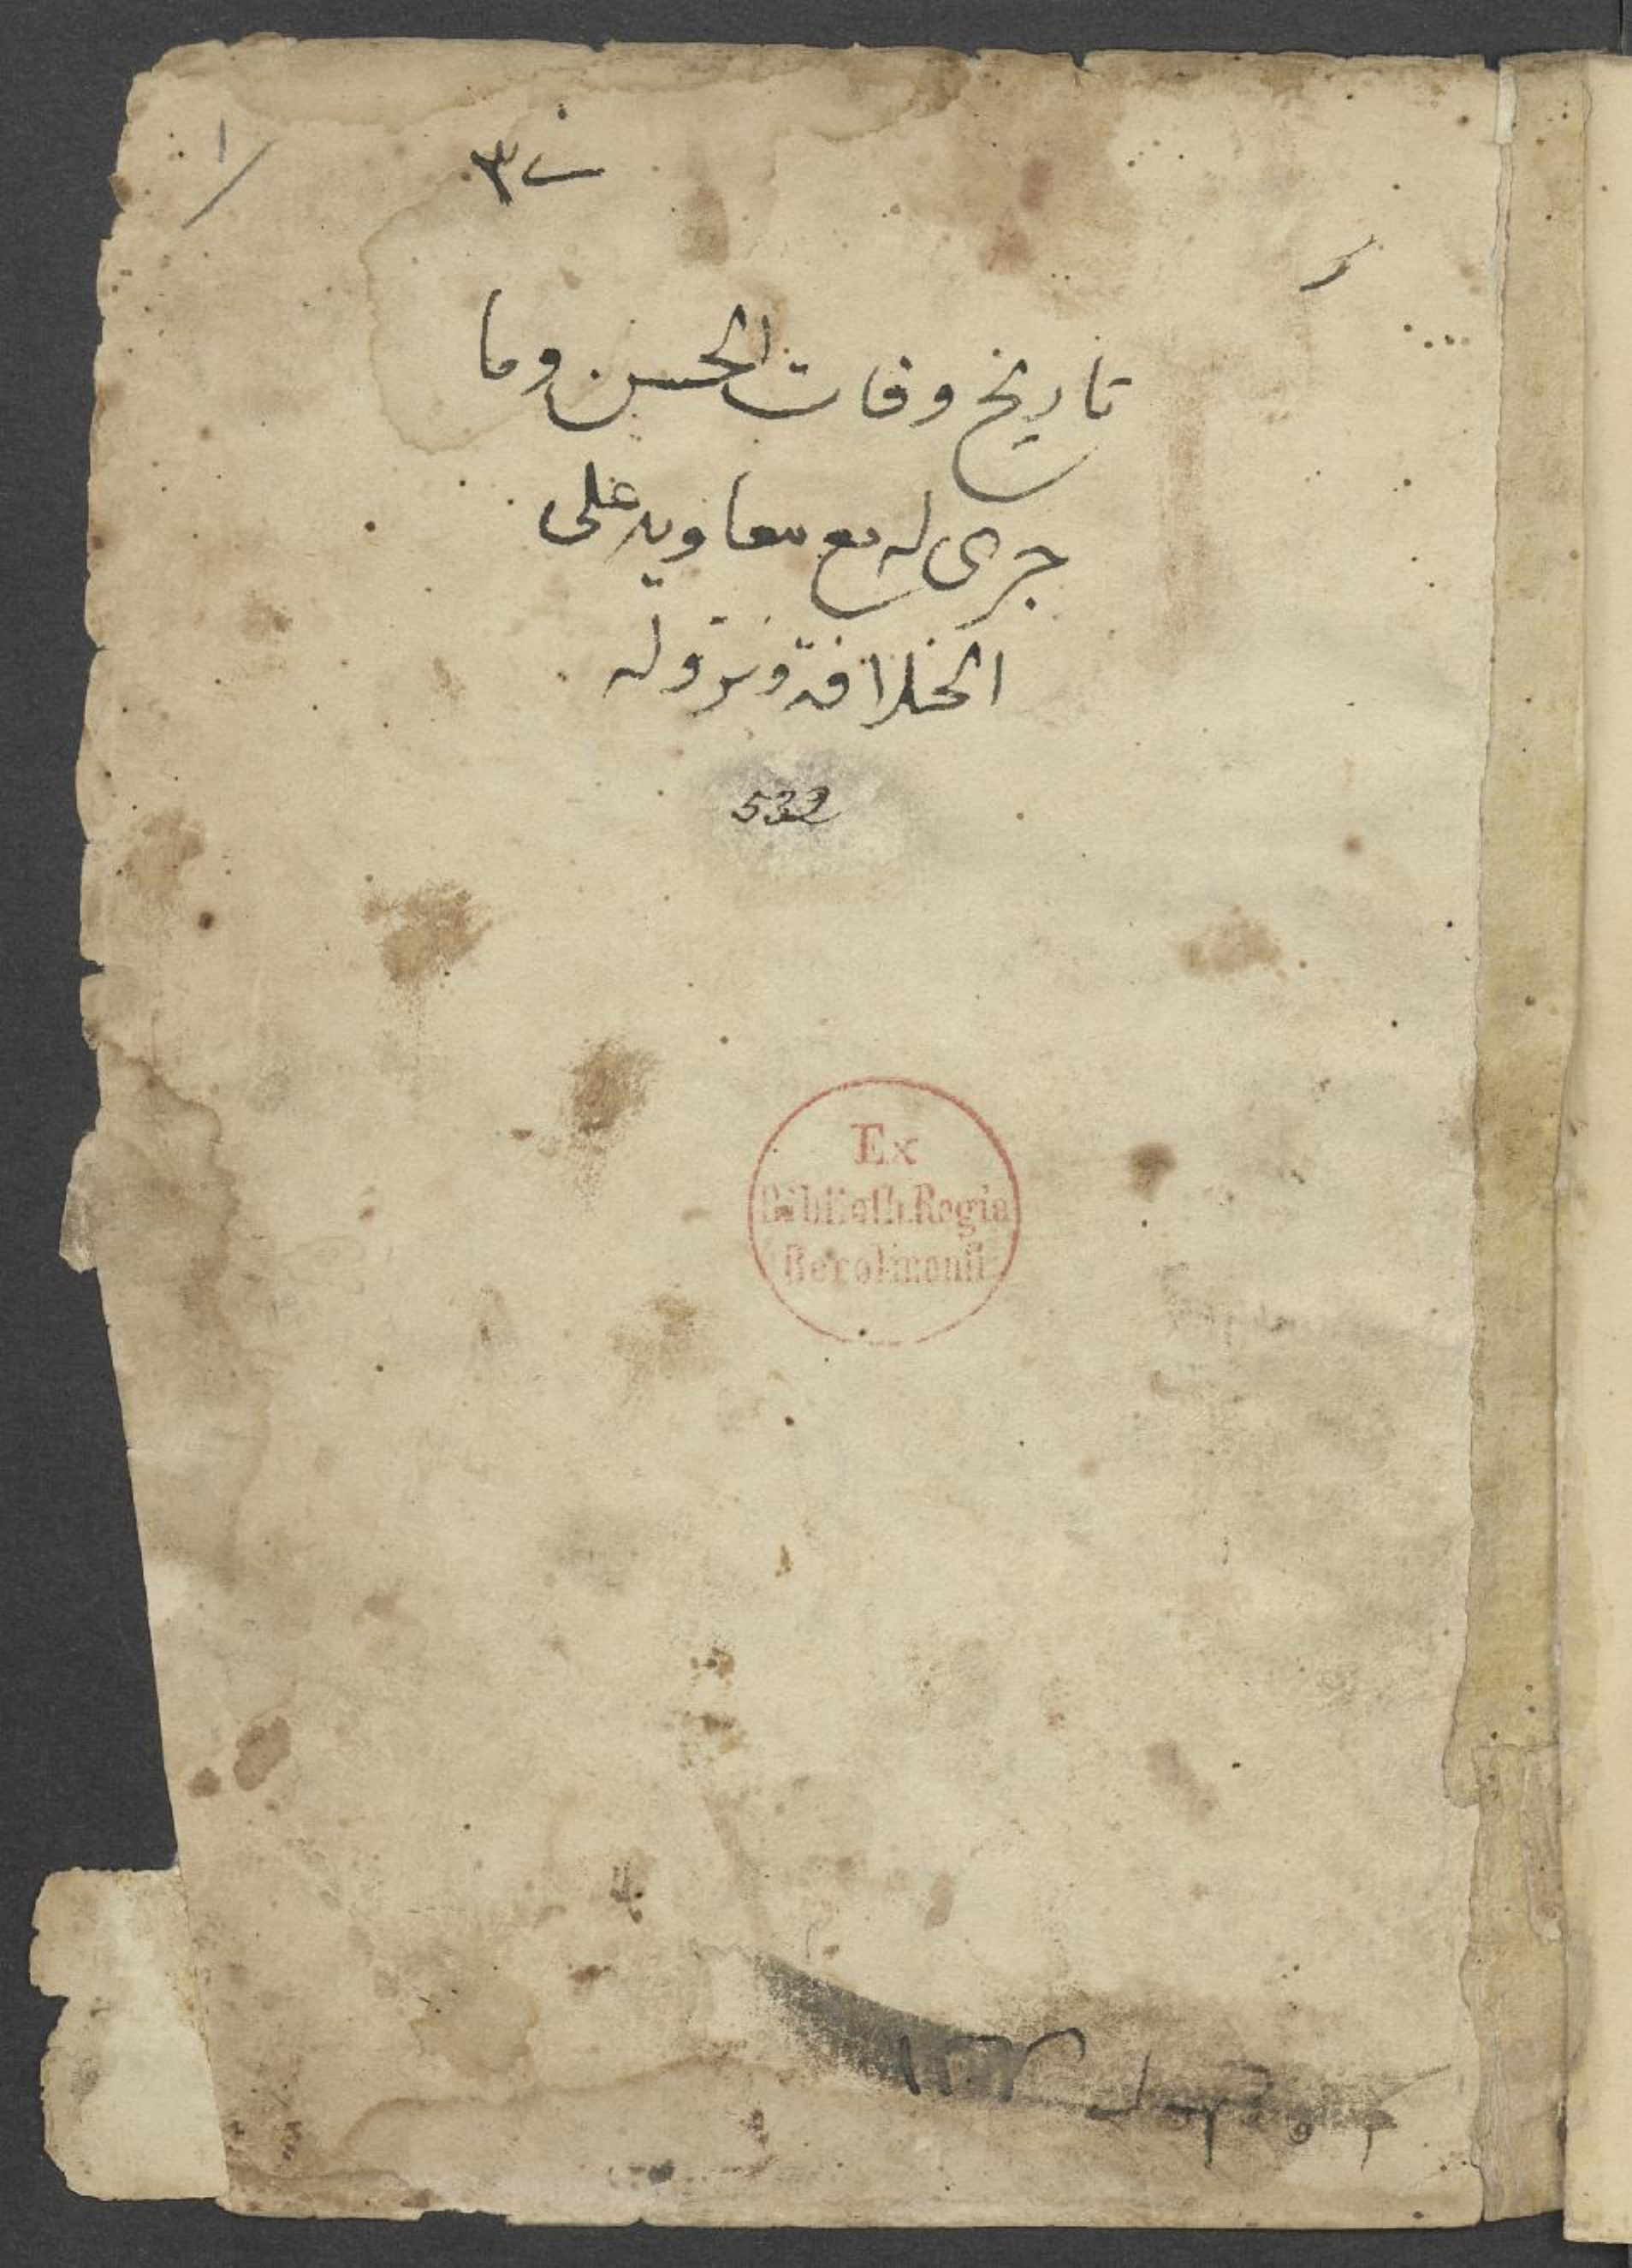 تاريخ وفات الحسن وما
جرى له مع معاويه على
الخلافة ونزوله
532
Ex
Biblioth. Regia
Berolinensi